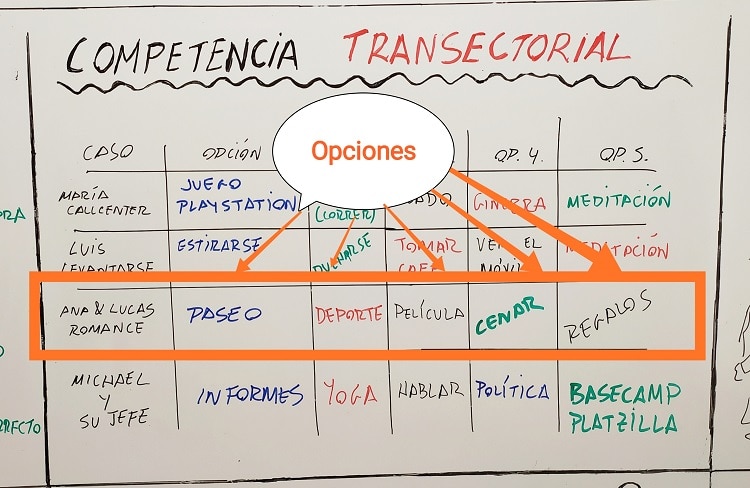 COMPETENCIA TRANSECTORIAL
Opciones
CASO OPCIÓN OP. 4. OP. 5.
MARÍA
CALLCENTER
JUEGO
PLAYSTATION
(CORRER)
GINEBRA
MEDITACIÓN
LUIS
LEVANTARSE
ESTIRARSE
DUCHARSE
TOMAR
CAFÉ
VER EL
MÓVIL
MEDITACIÓN
ANA & LUCAS
ROMANCE
PASEO
DEPORTE
PELÍCULA
CENAR
REGALOS
MICHAEL
Y
SU JEFE
INFORMES
YOGA
HABLAR
POLÍTICA
BASECAMP
PLATZILLA